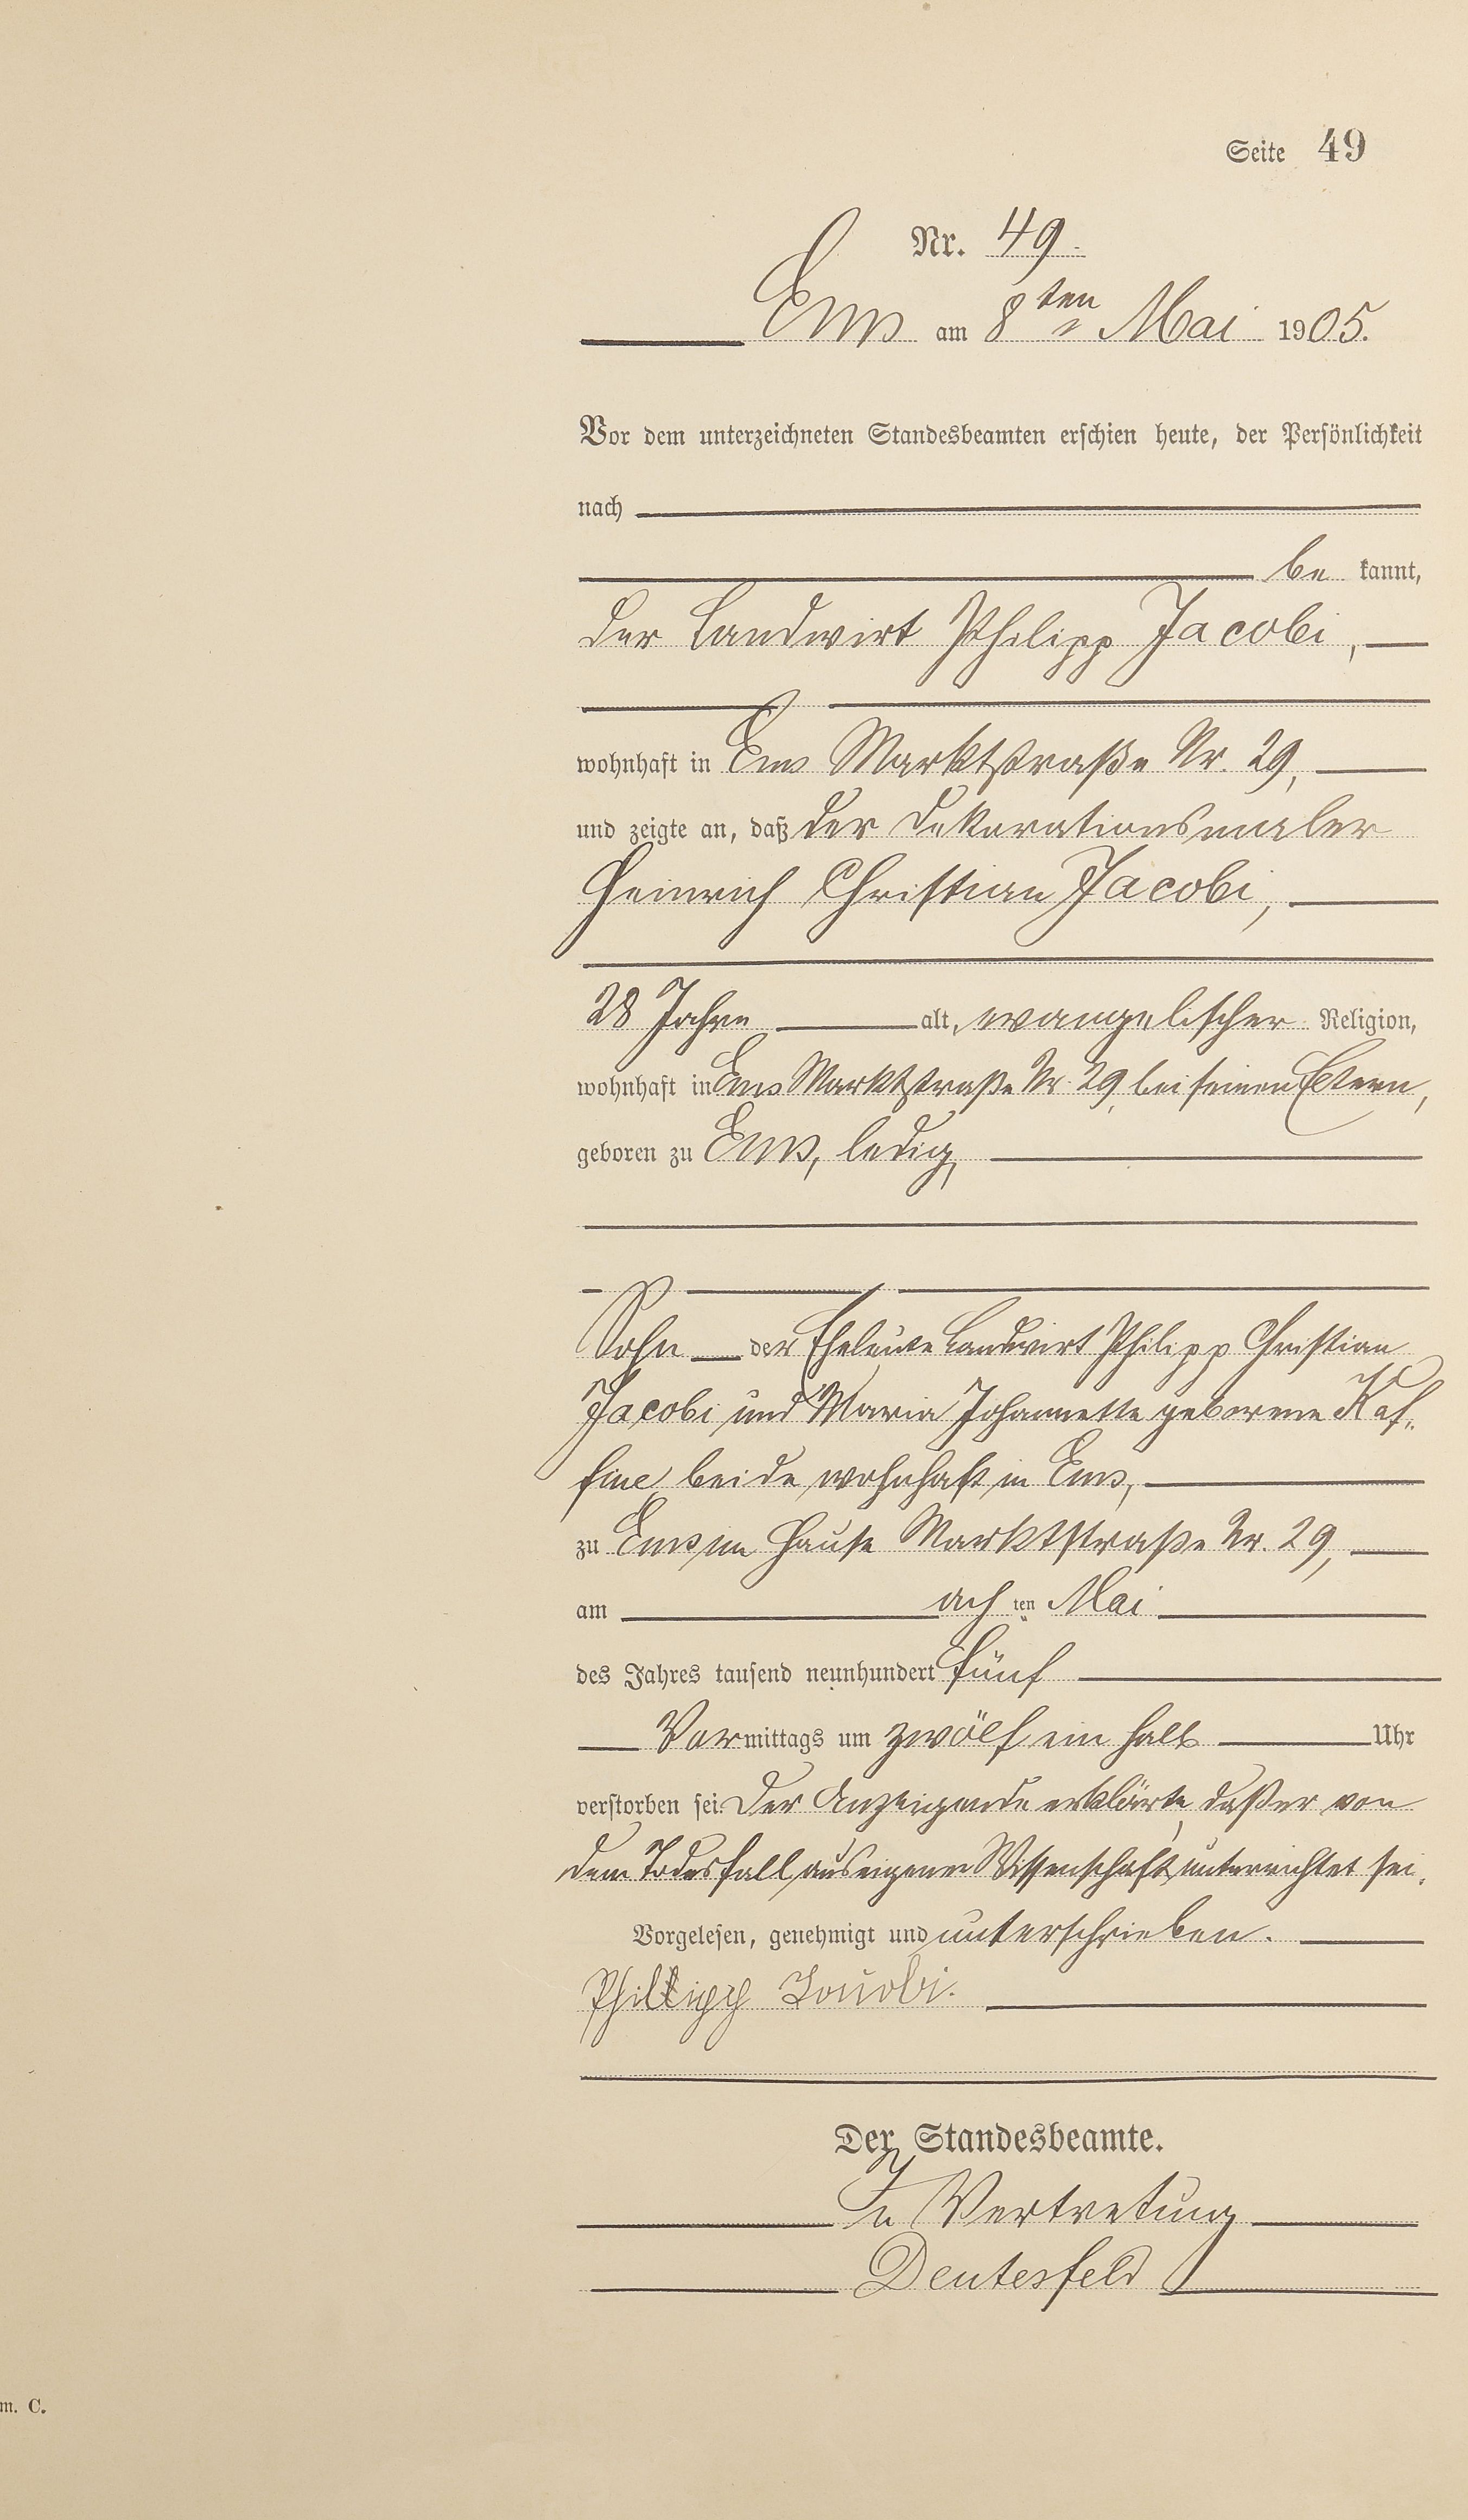 Seite 49
Nr. 49.
Ems am 8ten Mai 1905.
Vor dem unterzeichneten Standesbeamten erschien heute, der Persönlichkeit
nach
be kannt,
der Landwirt Philipp Jacobi,
wohnhaft in Ems Marktstraße Nr. 29,
und zeigte an, daß der Dekorationsmaler
Heinrich Christian Jacobi,
28 Jahre alt, evangelischer Religion,
wohnhaft in Ems Marktstraße Nr. 29, bei seinen Eltern,
geboren zu Ems, ledig,
Sohn der Eheleute Landwirt Philipp Christian
Jacobi und Maria Johannette geborene Kaf-
fine, beide wohnhaft in Ems,
zu Ems im Hause Marktstraße Nr. 29,
am achten Mai
des Jahres tausend neunhundert fünf
Vormittags um zwölf ein halb Uhr
verstorben sei. Der Anzeigende erklärte, daß er von
dem Todesfall aus eigener Wissenschaft unterrichtet sei.
Vorgelesen, genehmigt und unterschrieben.
Phillipp Jacobi.
Der Standesbeamte.
In Vertretung
Deutesfeld
m. C.